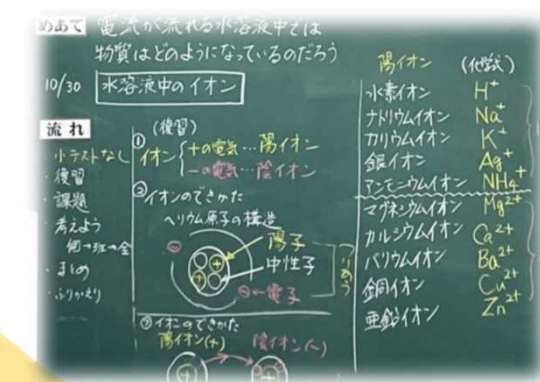 めあて 電流が流れる水溶液中では
物質はどのようになっているのだろう
10/30 水溶液中のイオン
流れ
・小テストなし
・復習
・課題
・考えよう
個→班→全
・まとめ
・ふりかえり
(復習)
① イオン
+の電気…陽イオン
-の電気…陰イオン
② イオンのできかた
ヘリウム原子の構造
陽子
中性子
⊖←電子
③ イオンのできかた
陽イオン(+) 陰イオン(-)
陽イオン (化学式)
水素イオン H⁺
ナトリウムイオン Na⁺
カリウムイオン K⁺
銀イオン Ag⁺
アンモニウムイオン NH₄⁺
マグネシウムイオン Mg²⁺
カルシウムイオン Ca²⁺
バリウムイオン Ba²⁺
銅イオン Cu²⁺
亜鉛イオン Zn²⁺